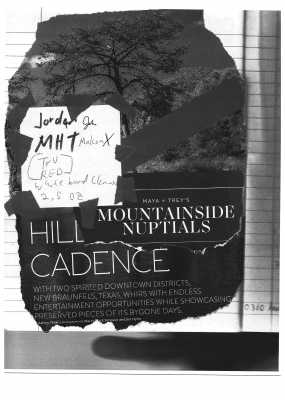 Jordan Jr
MHT Malcom X
TRU
RED
white board Cleaner
2,5 OZ
MAYA + TREY'S
MOUNTAINSIDE
NUPTIALS
HILL
CADENCE
WITH TWO SPIRITED DOWNTOWN DISTRICTS,
NEW BRAUNFELS, TEXAS, WHIRS WITH ENDLESS
ENTERTAINMENT OPPORTUNITIES WHILE SHOWCASING
PRESERVED PIECES OF ITS BYGONE DAYS.
0310